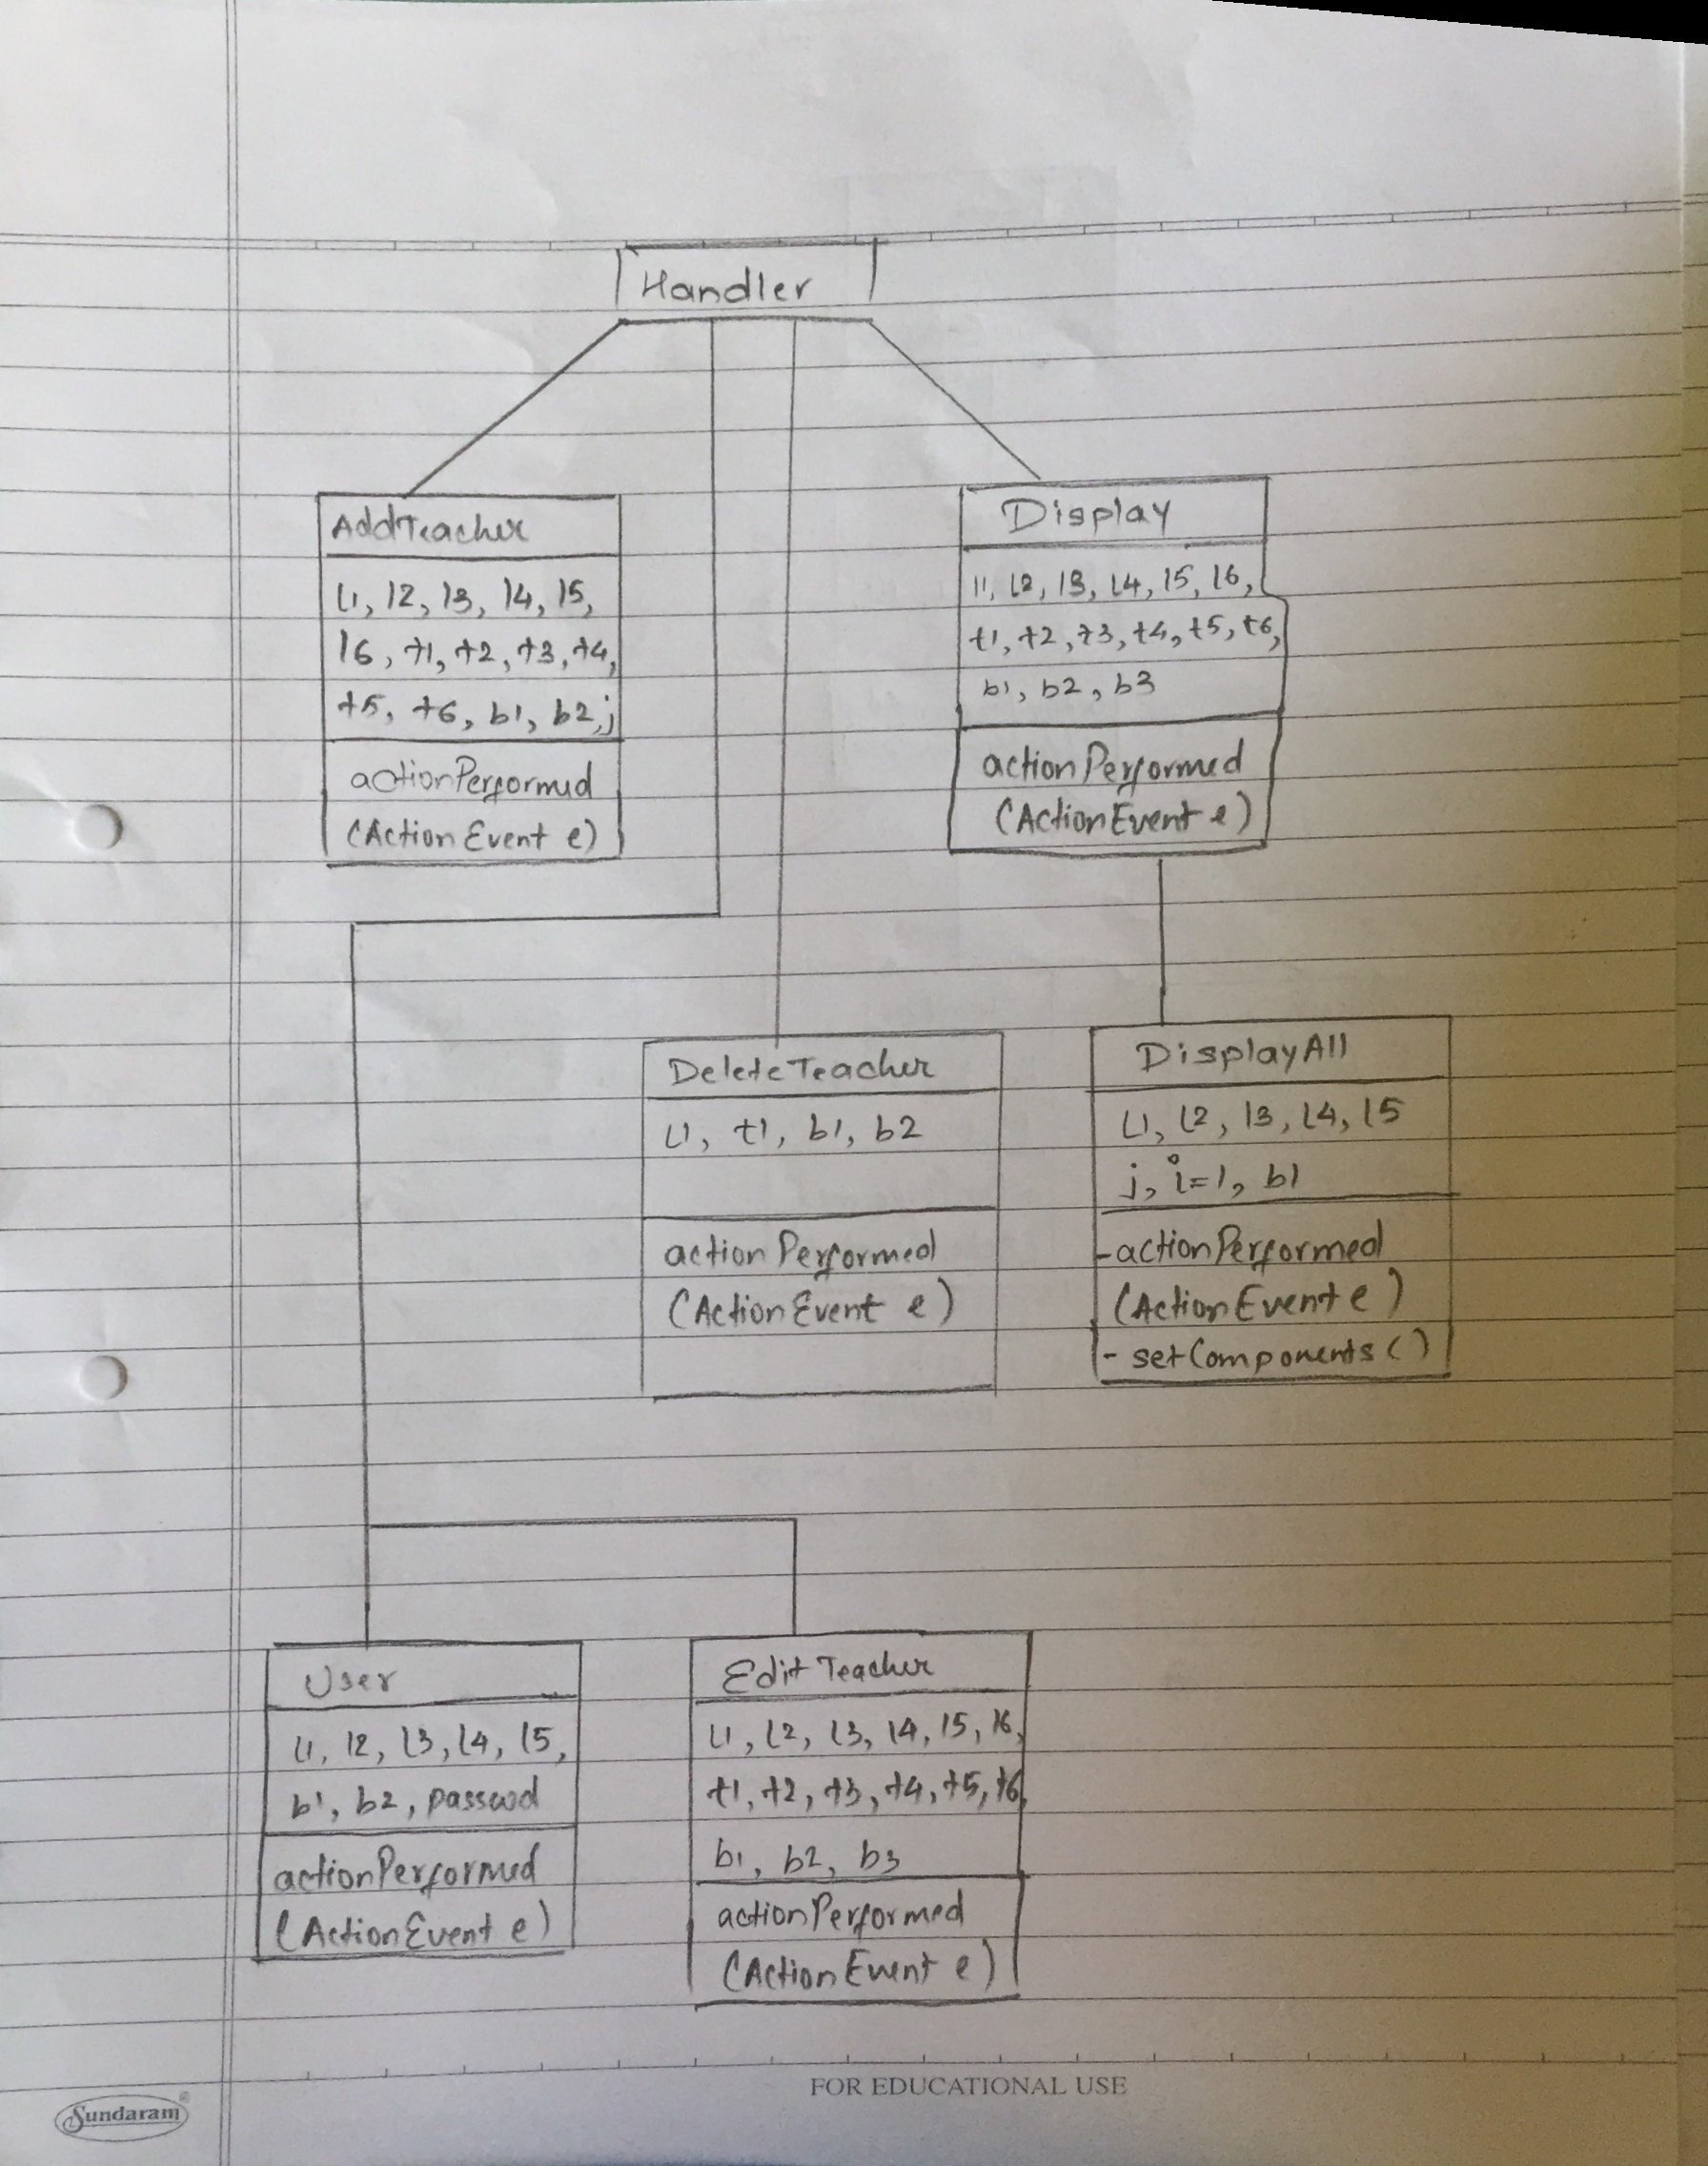 Handler
AddTeacher
l1, l2, l3, l4, l5,
l6, t1, t2, t3, t4,
t5, t6, b1, b2, j
actionPerformed
(ActionEvent e)
Display
l1, l2, l3, l4, l5, l6,
t1, t2, t3, t4, t5, t6,
b1, b2, b3
actionPerformed
(ActionEvent e)
DeleteTeacher
l1, t1, b1, b2
actionPerformed
(ActionEvent e)
DisplayAll
l1, l2, l3, l4, l5
j, i=1, b1
-actionPerformed
(ActionEvent e)
- setComponents()
User
l1, l2, l3, l4, l5,
b1, b2, passwd
actionPerformed
(ActionEvent e)
Edit Teacher
l1, l2, l3, l4, l5, l6,
t1, t2, t3, t4, t5, t6,
b1, b2, b3
actionPerformed
(ActionEvent e)
FOR EDUCATIONAL USE
Sundaram®